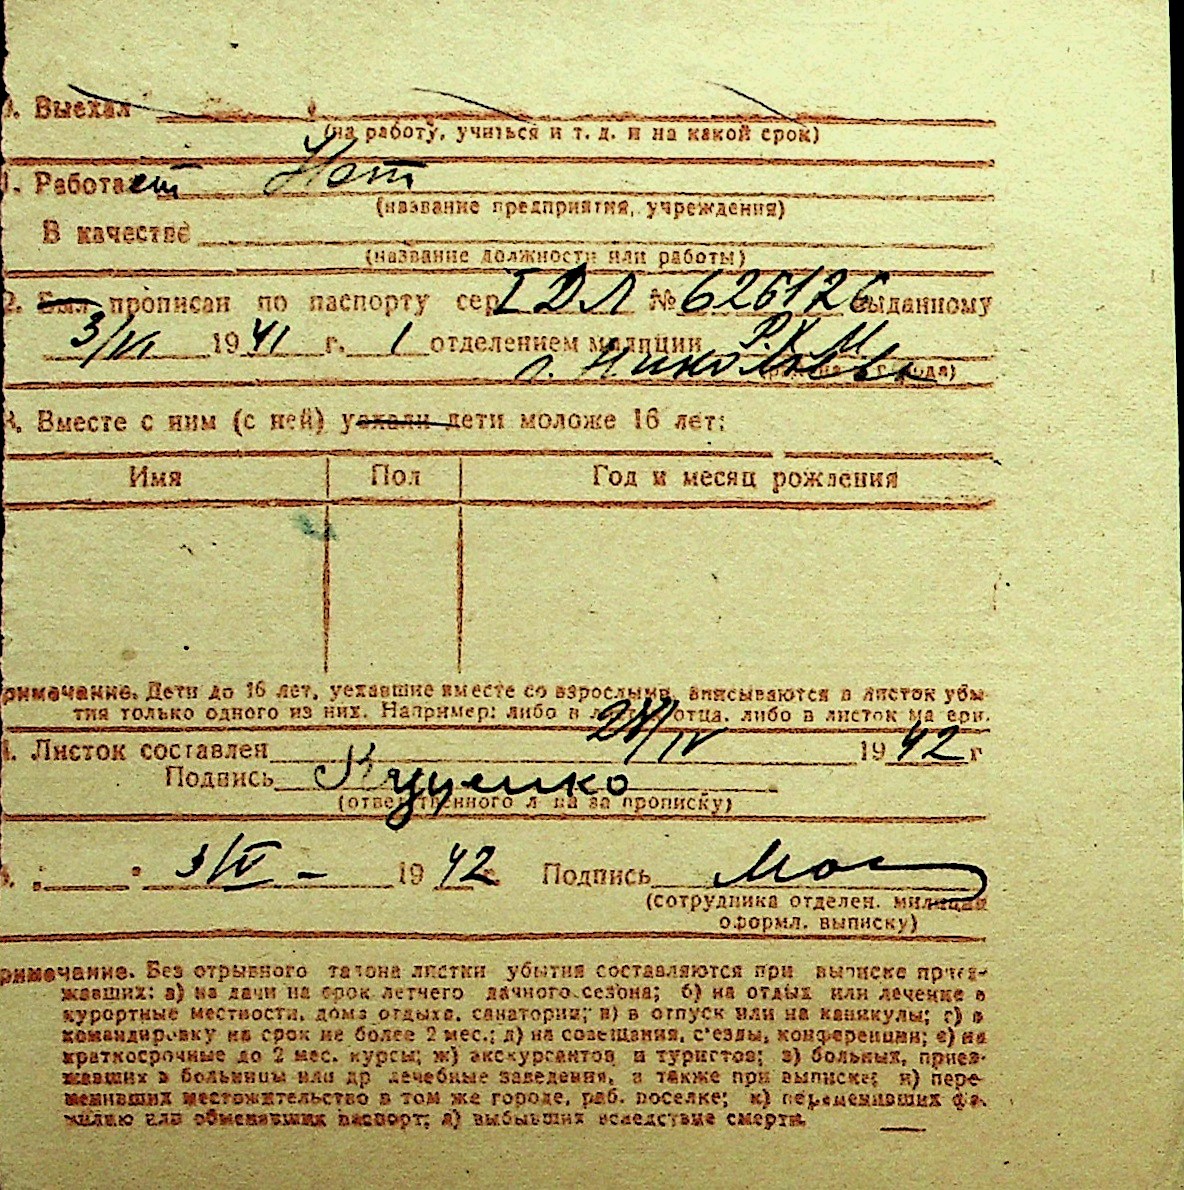 0. Выехал
(на работу, учиться и т. д. и на какой срок)
1. Работает Нет
(название предприятия, учреждения)
В качестве
(название должности или работы)
2. Был прописан по паспорту сер. I ДЛ № 626126 выданному
3/VI 1941 г. 1 отделением милиции Р.К.М.
г. Николаева
3. Вместе с ним (с ней) уехали дети моложе 16 лет:
Имя Пол Год и месяц рождения
римечание. Дети до 16 лет, уехавшие вместе со взрослыми, вписываются в листок убы-
тия только одного из них. Например: либо в листок отца, либо в листок матери.
4. Листок составлен /IV 1942 г
Подпись Куценко
(ответственного лица за прописку)
3/IV - 1942 г. Подпись
(сотрудника отделен. милиции
оформл. выписку)
римечание. Без отрывного талона листки убытия составляются при выписке приез-
жавших: а) на дачи на срок летнего дачного сезона; б) на отдых или лечение в
курортные местности, дома отдыха, санатории; в) в отпуск или на каникулы; г) в
командировку на срок не более 2 мес.; д) на совещания, с'езды, конференции; е) на
краткосрочные до 2 мес. курсы; ж) экскурсантов и туристов; з) больных, приез-
жавших в больницы или др лечебные заведения, а также при выписке; и) пере-
менивших местожительство в том же городе, раб. поселке; к) переменивших фа-
милию или обменявших паспорт; л) выбывших вследствие смерти.